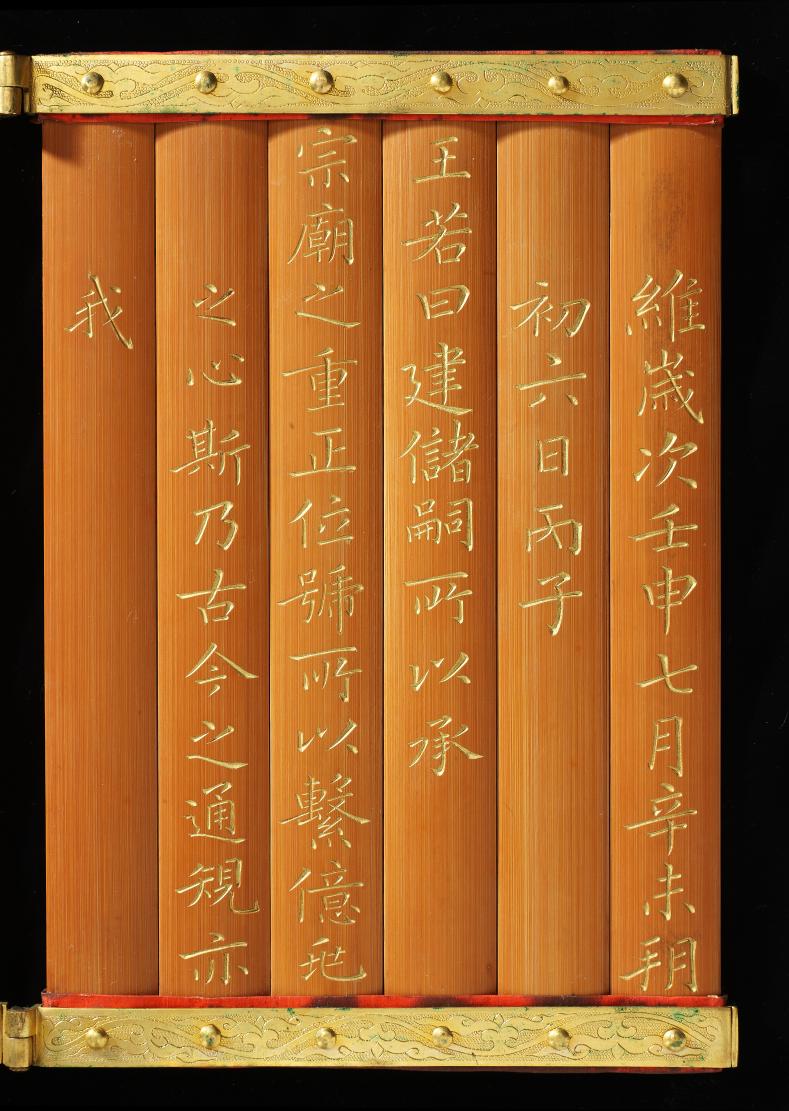 維歲次壬申七月辛未朔
初六日丙子
王若曰建儲嗣所以承
宗廟之重正位號所以繫億兆
之心斯乃古今之通規亦
我